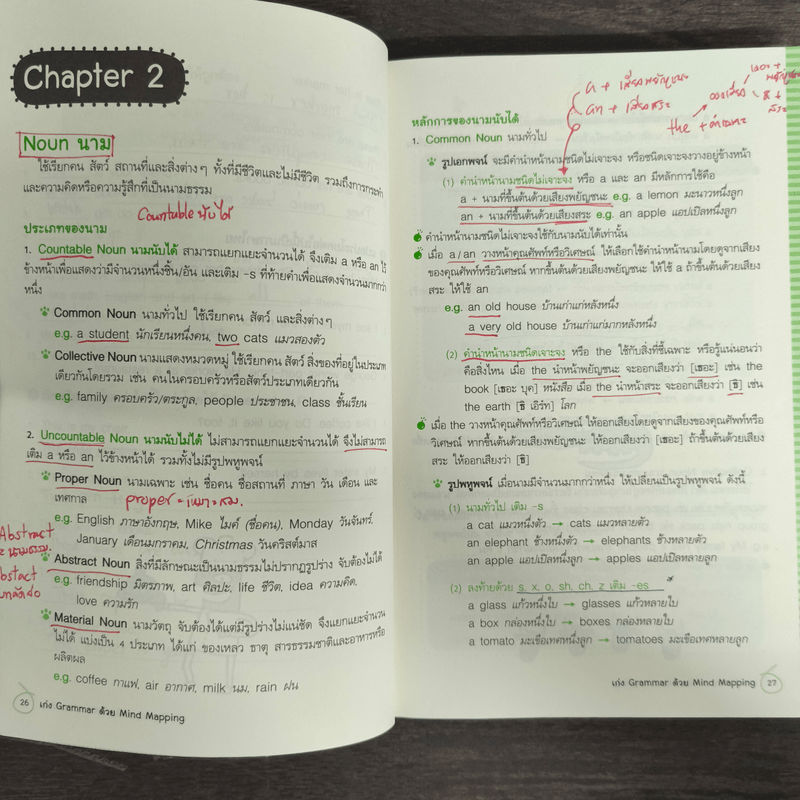 Chapter 2
Noun นาม
ใช้เรียกคน สัตว์ สถานที่และสิ่งต่างๆ ทั้งที่มีชีวิตและไม่มีชีวิต รวมถึงการกระทำ
และความคิดหรือความรู้สึกที่เป็นนามธรรม
Countable นับได้
ประเภทของนาม
1. Countable Noun นามนับได้ สามารถแยกแยะจำนวนได้ จึงเติม a หรือ an ไว้
ข้างหน้าเพื่อแสดงว่ามีจำนวนหนึ่งชิ้น/อัน และเติม -s ที่ท้ายคำเพื่อแสดงจำนวนมากกว่า
หนึ่ง
Common Noun นามทั่วไป ใช้เรียกคน สัตว์ และสิ่งต่างๆ
e.g. a student นักเรียนหนึ่งคน, two cats แมวสองตัว
Collective Noun นามแสดงหมวดหมู่ ใช้เรียกคน สัตว์ สิ่งของที่อยู่ในประเภท
เดียวกันโดยรวม เช่น คนในครอบครัวหรือสัตว์ประเภทเดียวกัน
e.g. family ครอบครัว/ตระกูล, people ประชาชน, class ชั้นเรียน
2. Uncountable Noun นามนับไม่ได้ ไม่สามารถแยกแยะจำนวนได้ จึงไม่สามารถ
เติม a หรือ an ไว้ข้างหน้าได้ รวมทั้งไม่มีรูปพหูพจน์
Proper Noun นามเฉพาะ เช่น ชื่อคน ชื่อสถานที่ ภาษา วัน เดือน และ
เทศกาล
proper = เหมาะสม.
e.g. English ภาษาอังกฤษ, Mike ไมค์ (ชื่อคน), Monday วันจันทร์,
January เดือนมกราคม, Christmas วันคริสต์มาส
Abstract
= นามธรรม.
Abstract Noun สิ่งที่มีลักษณะเป็นนามธรรมไม่ปรากฏรูปร่าง จับต้องไม่ได้
e.g. friendship มิตรภาพ, art ศิลปะ, life ชีวิต, idea ความคิด,
love ความรัก
Material Noun นามวัตถุ จับต้องได้แต่มีรูปร่างไม่แน่ชัด จึงแยกแยะจำนวน
ไม่ได้ แบ่งเป็น 4 ประเภท ได้แก่ ของเหลว ธาตุ สารธรรมชาติและอาหารหรือ
ผลิตผล
e.g. coffee กาแฟ, air อากาศ, milk นม, rain ฝน
26 เก่ง Grammar ด้วย Mind Mapping
a + เสียงพยัญชนะ
an + เสียงสระ
the +
หลักการของนามนับได้
1. Common Noun นามทั่วไป
รูปเอกพจน์ จะมีคำนำหน้านามชนิดไม่เจาะจง หรือชนิดเจาะจงวางอยู่ข้างหน้า
(1) คำนำหน้านามชนิดไม่เจาะจง หรือ a และ an มีหลักการใช้คือ
a + นามที่ขึ้นต้นด้วยเสียงพยัญชนะ e.g. a lemon มะนาวหนึ่งลูก
an + นามที่ขึ้นต้นด้วยเสียงสระ e.g. an apple แอปเปิลหนึ่งลูก
คำนำหน้านามชนิดไม่เจาะจงใช้กับนามนับได้เท่านั้น
เมื่อ a/an วางหน้าคุณศัพท์หรือวิเศษณ์ ให้เลือกใช้คำนำหน้านามโดยดูจากเสียง
ของคุณศัพท์หรือวิเศษณ์ หากขึ้นต้นด้วยเสียงพยัญชนะ ให้ใช้ a ถ้าขึ้นต้นด้วยเสียง
สระ ให้ใช้ an
e.g. an old house บ้านเก่าแก่หลังหนึ่ง
a very old house บ้านเก่าแก่มากหลังหนึ่ง
(2) คำนำหน้านามชนิดเจาะจง หรือ the ใช้กับสิ่งที่ชี้เฉพาะ หรือรู้แน่นอนว่า
คือสิ่งไหน เมื่อ the นำหน้าพยัญชนะ จะออกเสียงว่า [เธอะ] เช่น the
book [เธอะ บุค] หนังสือ เมื่อ the นำหน้าสระ จะออกเสียงว่า [ธิ] เช่น
the earth [ธิ เอิร์ท] โลก
เมื่อ the วางหน้าคุณศัพท์หรือวิเศษณ์ ให้ออกเสียงโดยดูจากเสียงของคุณศัพท์หรือ
วิเศษณ์ หากขึ้นต้นด้วยเสียงพยัญชนะ ให้ออกเสียงว่า [เธอะ] ถ้าขึ้นต้นด้วยเสียง
สระ ให้ออกเสียงว่า [ธิ]
รูปพหูพจน์ เมื่อนามมีจำนวนมากกว่าหนึ่ง ให้เปลี่ยนเป็นรูปพหูพจน์ ดังนี้
(1) นามทั่วไป เติม -s
a cat แมวหนึ่งตัว → cats แมวหลายตัว
an elephant ช้างหนึ่งตัว → elephants ช้างหลายตัว
an apple แอปเปิลหนึ่งลูก → apples แอปเปิลหลายลูก
(2) ลงท้ายด้วย s, x, o, sh, ch, z เติม -es
a glass แก้วหนึ่งใบ → glasses แก้วหลายใบ
a box กล่องหนึ่งใบ → boxes กล่องหลายใบ
a tomato มะเขือเทศหนึ่งลูก → tomatoes มะเขือเทศหลายลูก
เก่ง Grammar ด้วย Mind Mapping 27